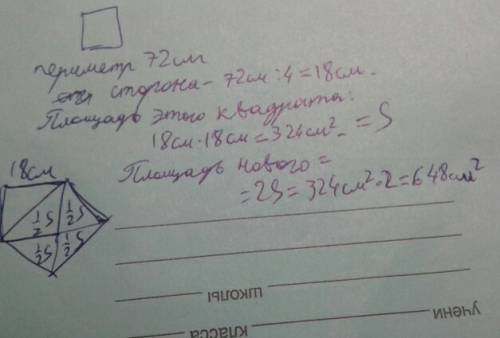 периметр 72см
сторона - 72см : 4 = 18см.
Площадь этого квадрата:
18см·18см = 324см² = S
Площадь нового =
= 2S = 324см²·2 = 648см²
18см
½S ½S
½S ½S
школы
учени
класса